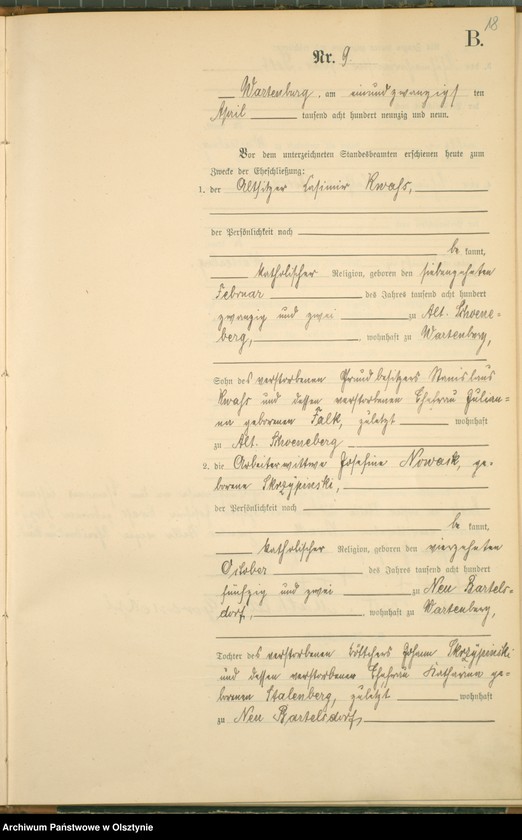 18
B.
Nr. 9.
Wartenburg, am einundzwanzigsten
April tausend acht hundert neunzig und neun.
Vor dem unterzeichneten Standesbeamten erschienen heute zum
Zwecke der Eheschließung:
1. der Altsitzer Casimir Kwass,
der Persönlichkeit nach
be kannt,
katholischer Religion, geboren den siebenzehnten
Februar des Jahres tausend acht hundert
zwanzig und zwei zu Alt. Schoene-
berg, wohnhaft zu Wartenburg,
Sohn des verstorbenen Grundbesitzers Stanislaus
Kwass und dessen verstorbenen Ehefrau Julian-
na geborenen Falk, zuletzt wohnhaft
zu Alt. Schoeneberg
2. die Arbeiterwittwe Josefine Nowack, ge-
borene Skrzypinski,
der Persönlichkeit nach
be kannt,
katholischer Religion, geboren den vierzehnten
October des Jahres tausend acht hundert
fünfzig und zwei zu Neu Bartels-
dorf, wohnhaft zu Wartenburg,
Tochter des verstorbenen Böttchers Johann Skrzypinski
und dessen verstorbenen Ehefrau Katharina ge-
borenen Stalenberg, zuletzt wohnhaft
zu Neu Bartelsdorf,
Archiwum Państwowe w Olsztynie